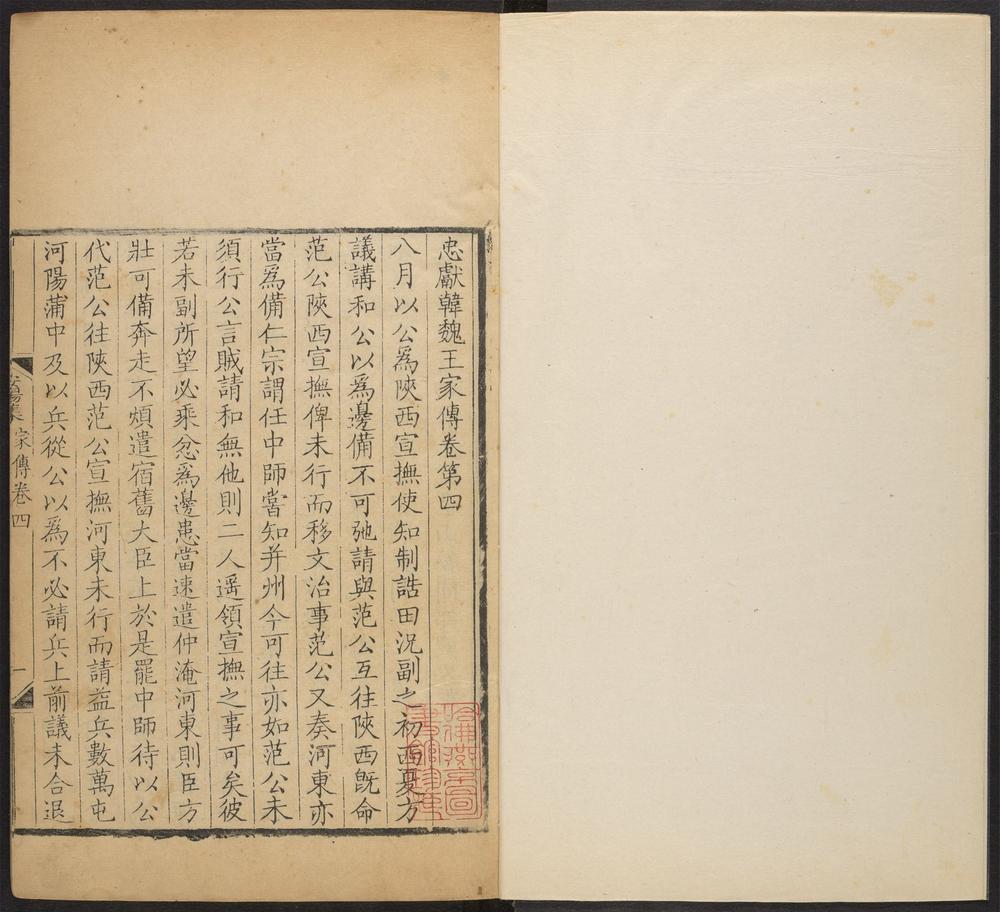 忠獻韓魏王家傳卷第四
八月以公爲陝西宣撫使知制誥田況副之初西夏方
議講和公以爲邊備不可弛請與范公互往陝西既命
范公陝西宣撫俾未行而移文治事范公又奏河東亦
當爲備仁宗謂任中師嘗知并州今可往亦如范公未
須行公言賊請和無他則二人遥領宣撫之事可矣彼
若未副所望必乘忿爲邊患當速遣仲淹河東則臣方
壯可備奔走不煩遣宿舊大臣上於是罷中師待以公
代范公往陝西范公宣撫河東未行而請益兵數萬屯
河陽蒲中及以兵從公以爲不必請兵上前議未合退
安陽集 家傳卷四
一
哈佛燕京圖
書館珍藏